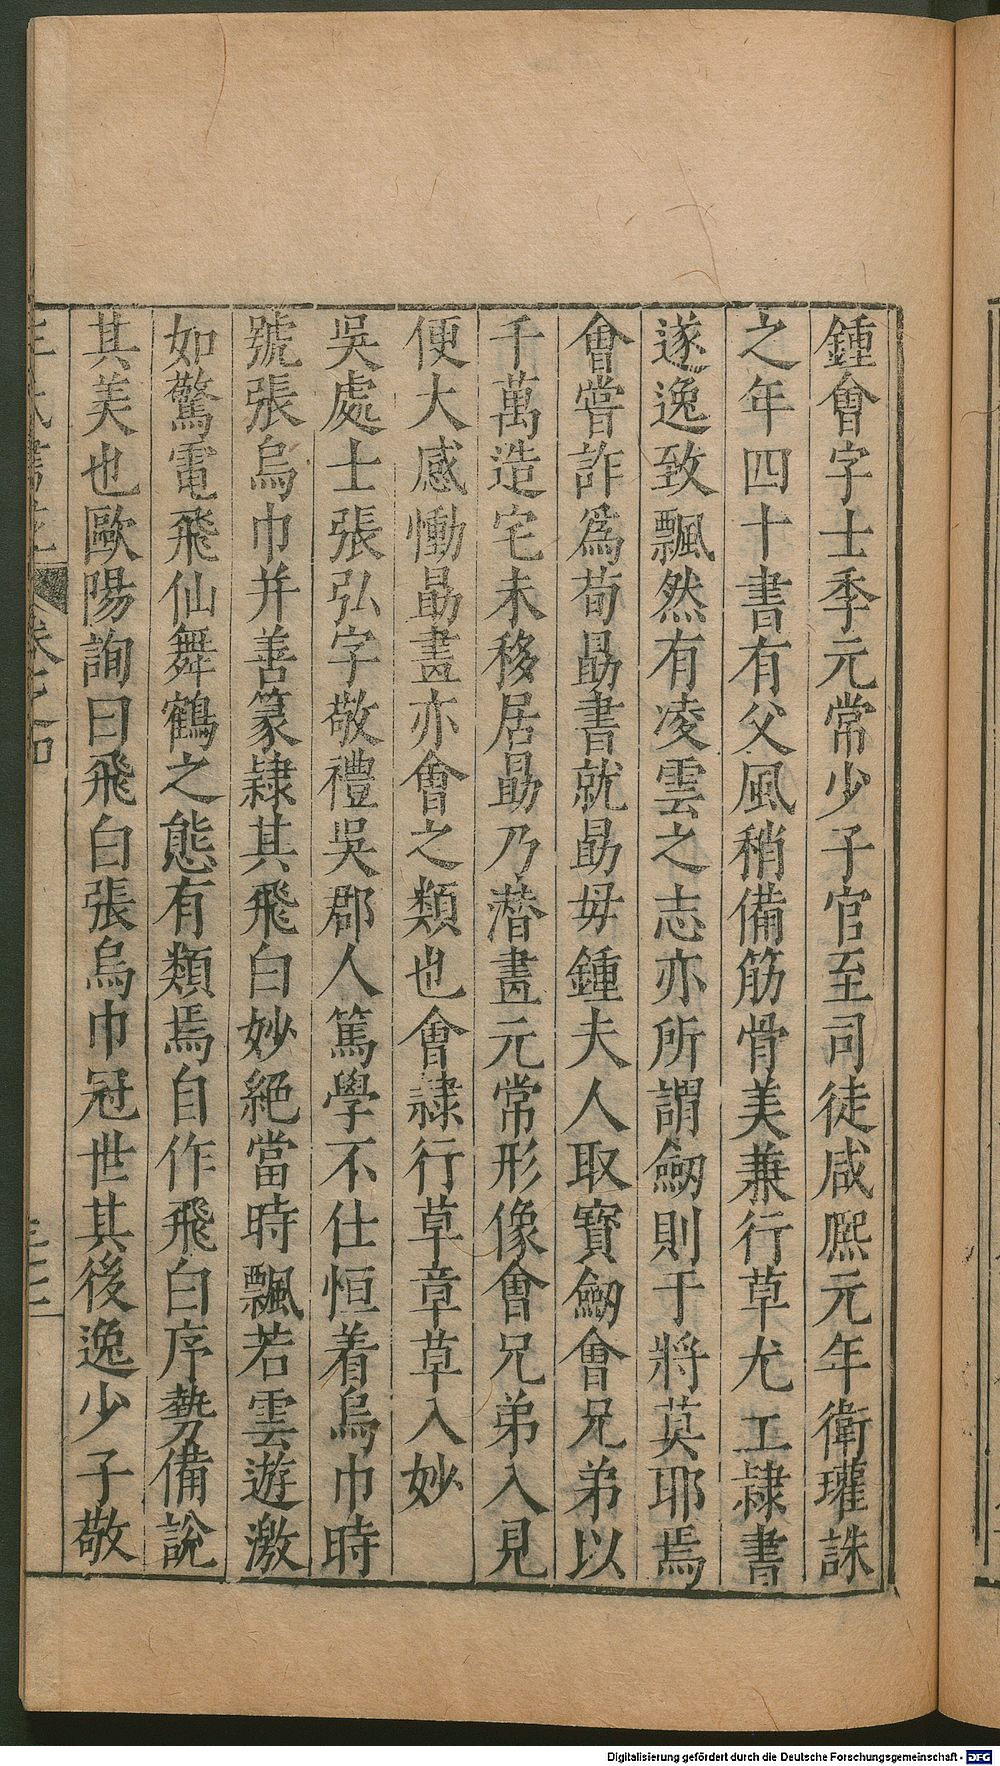 鍾會字士季元常少子官至司徒咸熙元年衛瓘誅
之年四十書有父風稍備筋骨美兼行草尤工隷書
遂逸致飄然有凌雲之志亦所謂劒則于將莫耶焉
會嘗詐爲荀勗書就勗毋鍾夫人取寳劒會兄弟以
千萬造宅未移居勗乃潛畫元常形像會兄弟入見
便大感慟勗畫亦會之類也會隷行草章草入妙
吳處士張弘字敬禮吳郡人篤學不仕恒着烏巾時
號張烏巾并善篆隷其飛白妙絕當時飄若雲遊激
如驚電飛仙舞鶴之態有類焉自作飛白序勢備說
其美也歐陽詢曰飛白張烏巾冠世其後逸少子敬
卷之四
Digitalisierung gefördert durch die Deutsche Forschungsgemeinschaft - DFG